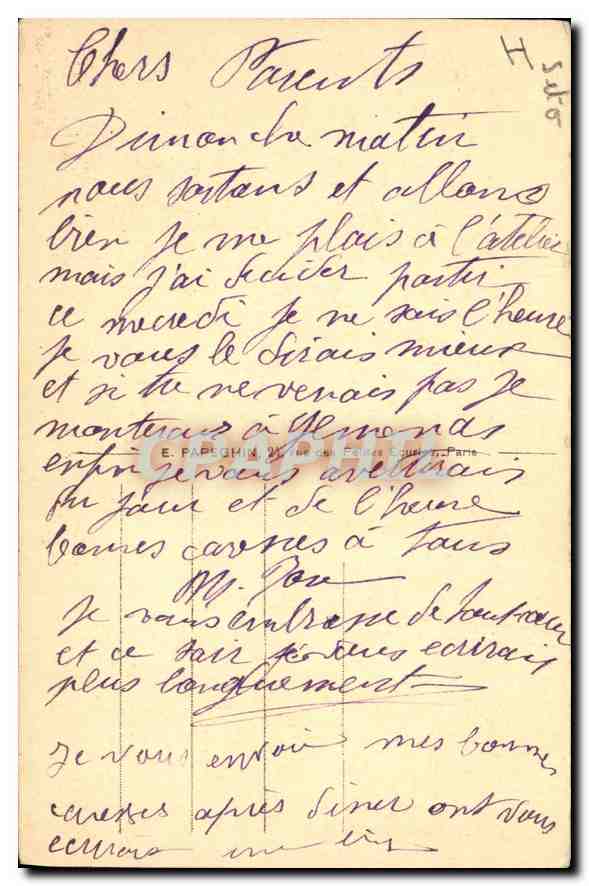 Chers Parents
H
Seto
Dimanche matin
nous sortons et allons
bien je me plais à l'atelier
mais j'ai decider partir
ce mecredi je ne sais l'heure
je vous le dirais mieux
et si tu ne venais pas je
monterais à
E. PAPEGHIN, 21, rue des Petites Ecuries, Paris
CRAPHT
enfin je vous avertirais
du jour et de l'heure
bonnes caresses à tous
je vous embrasse de tout cœur
et ce soir je vous ecrirais
plus longuement
je vous envoie mes bonnes
caresses après diner ont vous
ecrirais